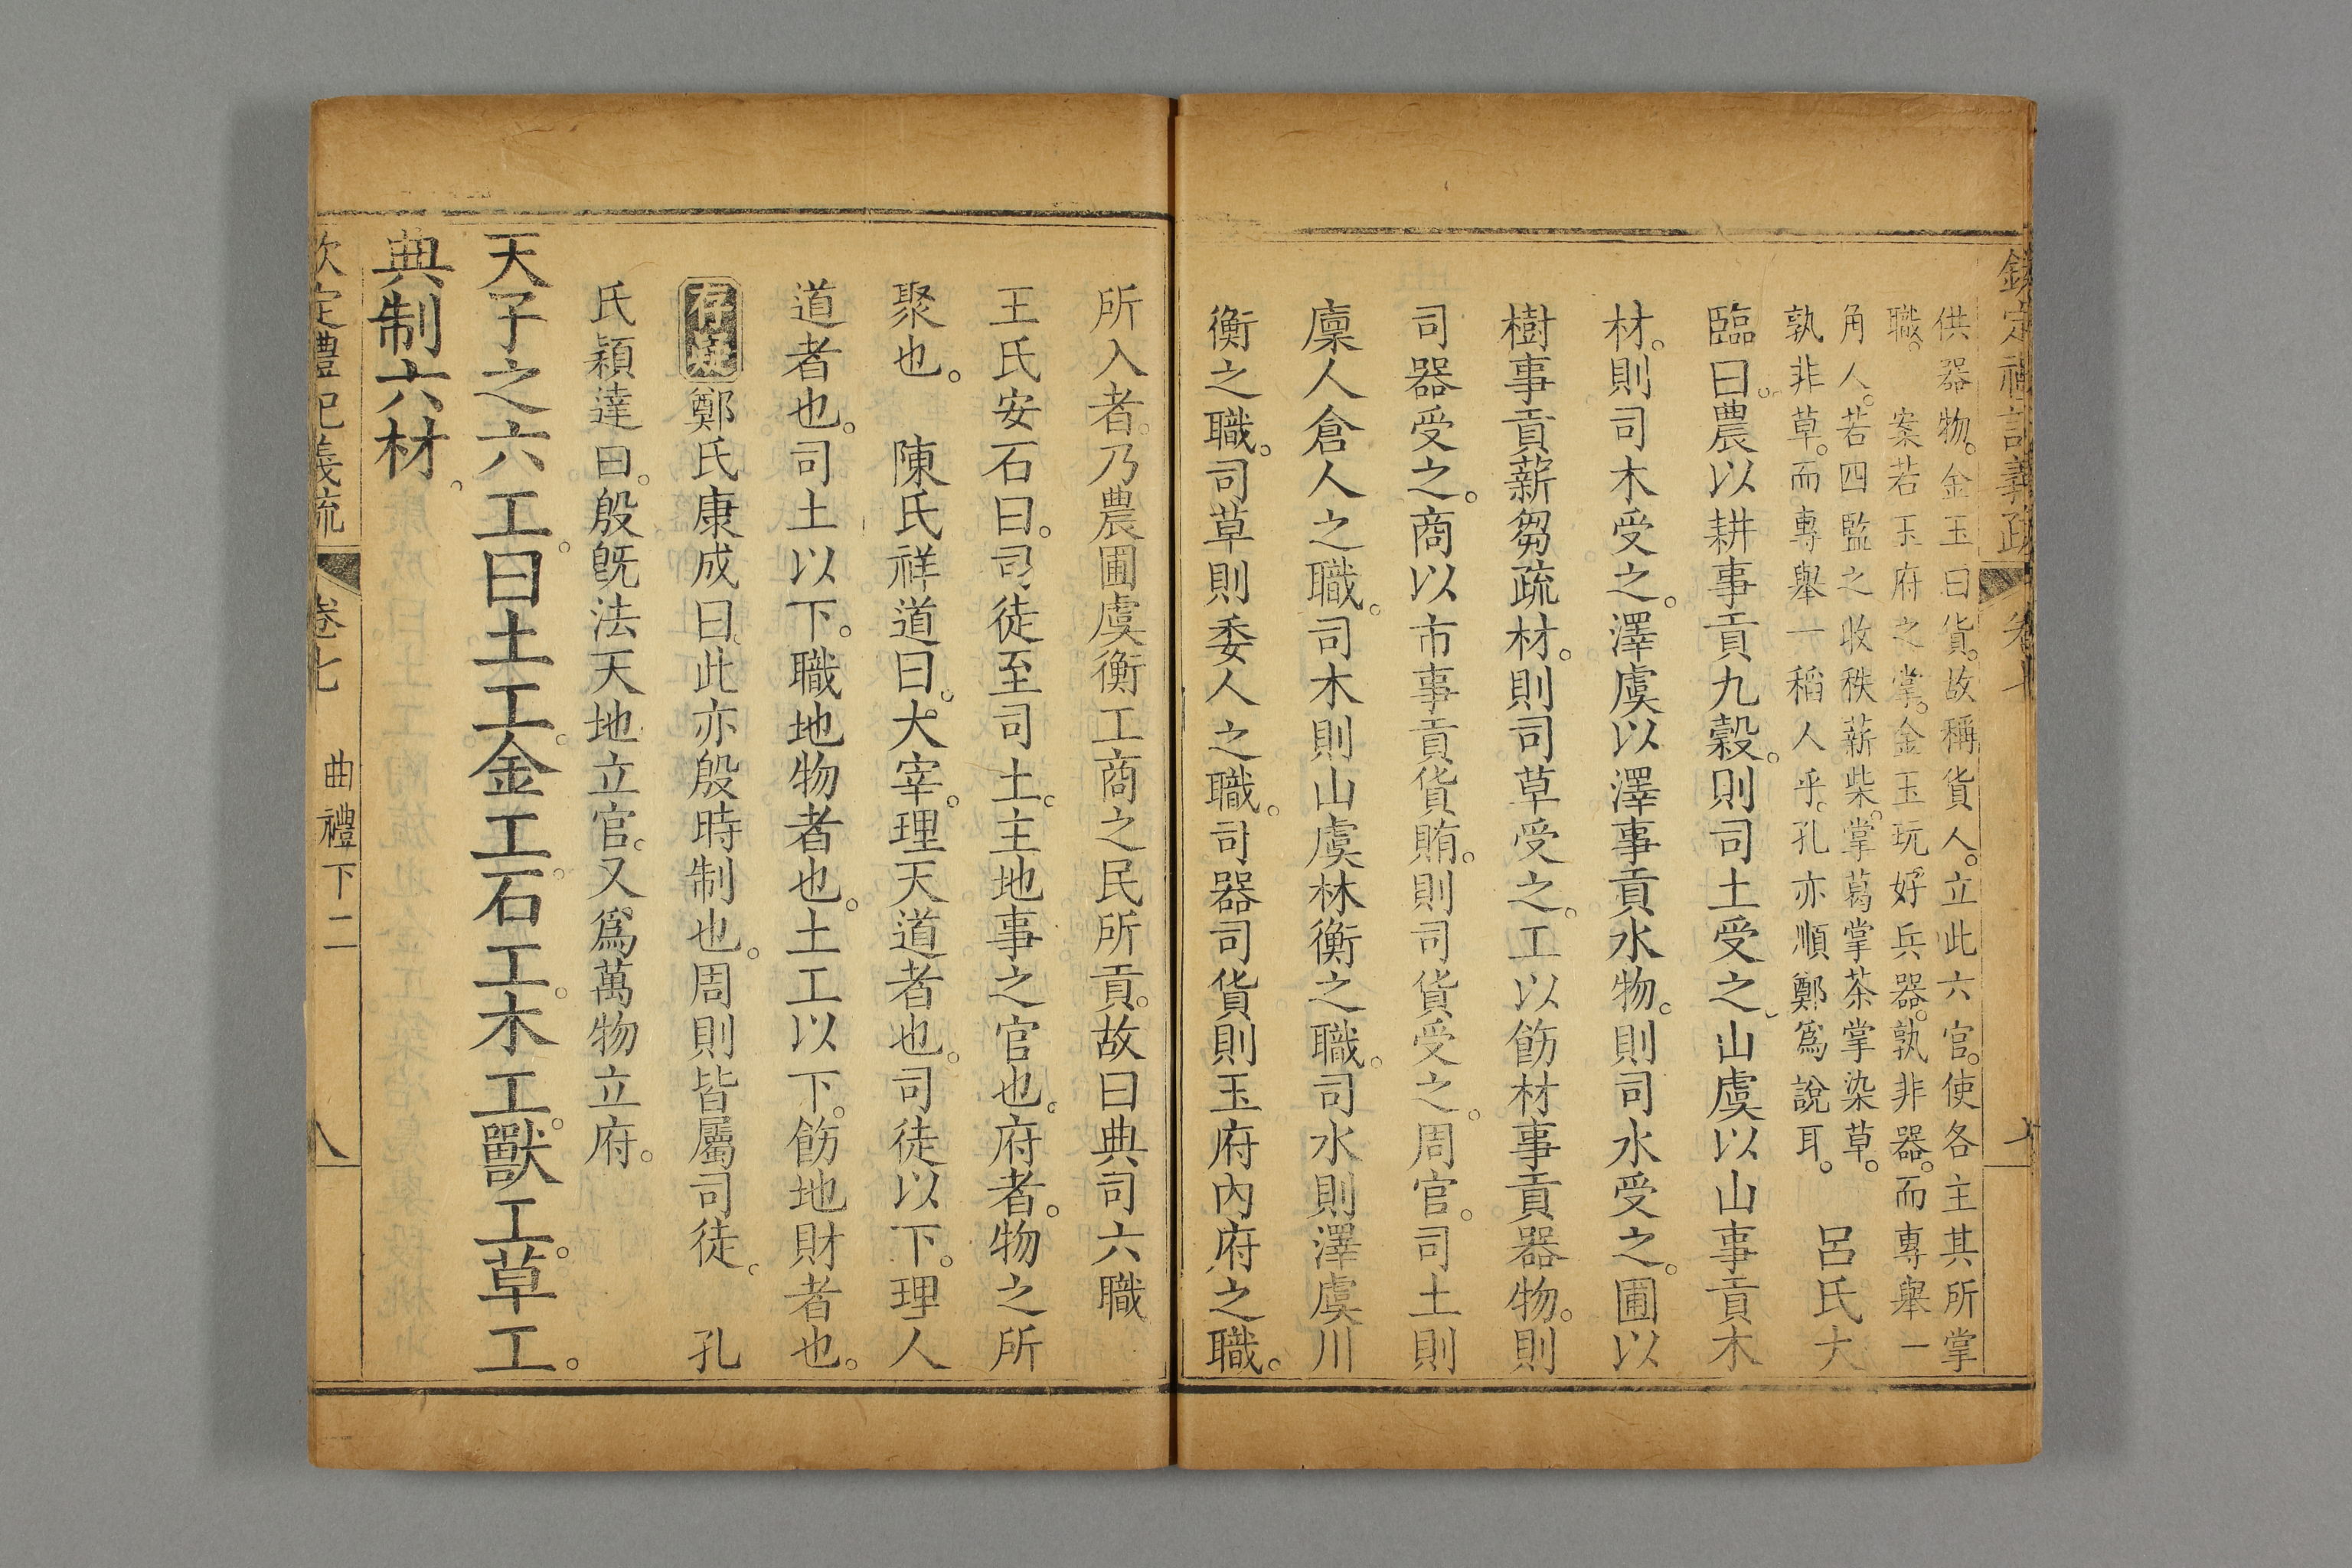 欽定禮記義疏 卷七
供器物。金玉曰貨。故稱貨人。立此六官。使各主其所掌
職。 案若玉府之掌。金玉玩好兵器。孰非器。而專舉一
角人。若四監之收秩薪柴。掌葛掌荼掌染草。
孰非草。而專舉一稻人乎。孔亦順鄭爲說耳。 呂氏大
臨曰。農以耕事貢九穀。則司土受之。山虞以山事貢木
材。則司木受之。澤虞以澤事貢水物。則司水受之。圃以
樹事貢薪芻疏材。則司草受之。工以飭材事貢器物。則
司器受之。商以市事貢貨賄。則司貨受之。周官。司土則
廩人倉人之職。司木則山虞林衡之職。司水則澤虞川
衡之職。司草則委人之職。司器司貨則玉府內府之職。
所入者。乃農圃虞衡工商之民所貢。故曰典司六職
王氏安石曰。司徒至司土。主地事之官也。府者。物之所
聚也。 陳氏祥道曰。大宰。理天道者也。司徒以下。理人
道者也。司土以下。職地物者也。土工以下。飭地財者也。
存疑 鄭氏康成曰。此亦殷時制也。周則皆屬司徒。 孔
氏穎達曰。殷旣法天地立官。又爲萬物立府。
天子之六工。曰土工。金工。石工。木工。獸工。草工。
典制六材。
欽定禮記義疏 卷七 曲禮下二 八